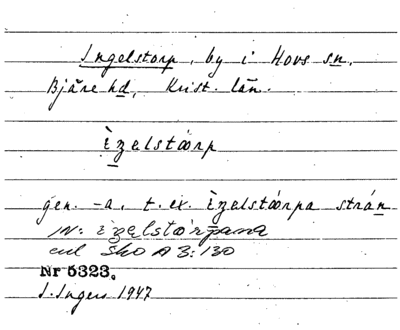 Ingelstorp, by i Hovs sn,
Bjäre hd, Krist. län.
èzelstó̀rp
gen. -a, t. ex. èzelstó̀rpa strán
IN: èzelstó̀rpana
enl SkO A 3:130
Nr 5323.
I. Ingers 1947